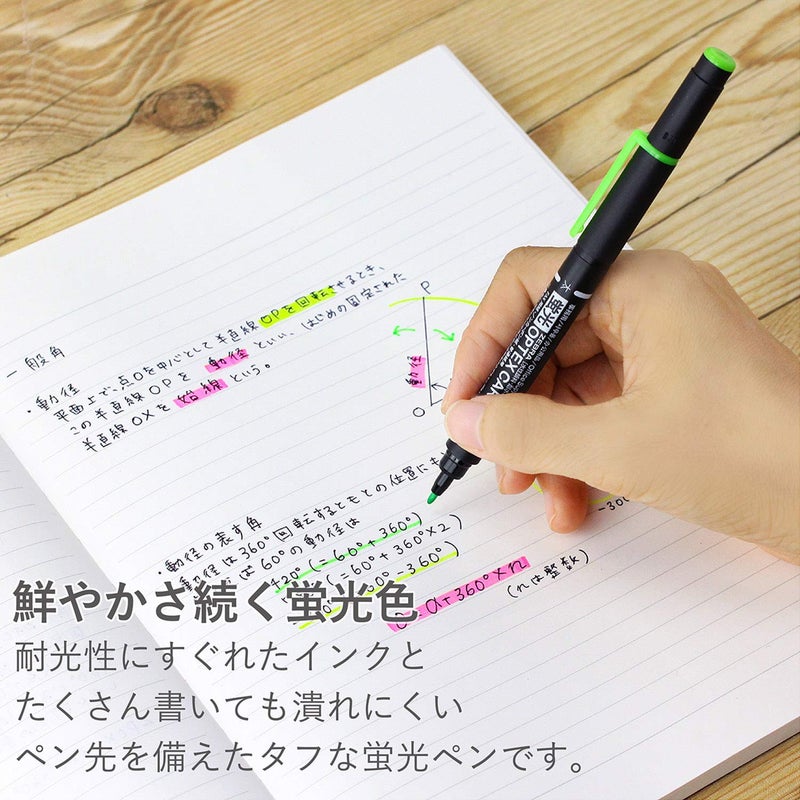 一般角
・動径
平面上で点Oを中心として半直線OPを回転させるとき、
この半直線OPを 動径 といい、はじめの固定された
半直線OXを 始線 という。
P
動径
O
・動径の表す角
動径は360°回転するともとの位置にも
は60°の動径は
420°(=60°+360°)
(=60°+360°×2)
60°-360°)
=α+360°×n
(nは整数)
-300
太
蛍光 OPTEX CAR
ZEBRA
鮮やかさ続く蛍光色
耐光性にすぐれたインクと
たくさん書いても潰れにくい
ペン先を備えたタフな蛍光ペンです。